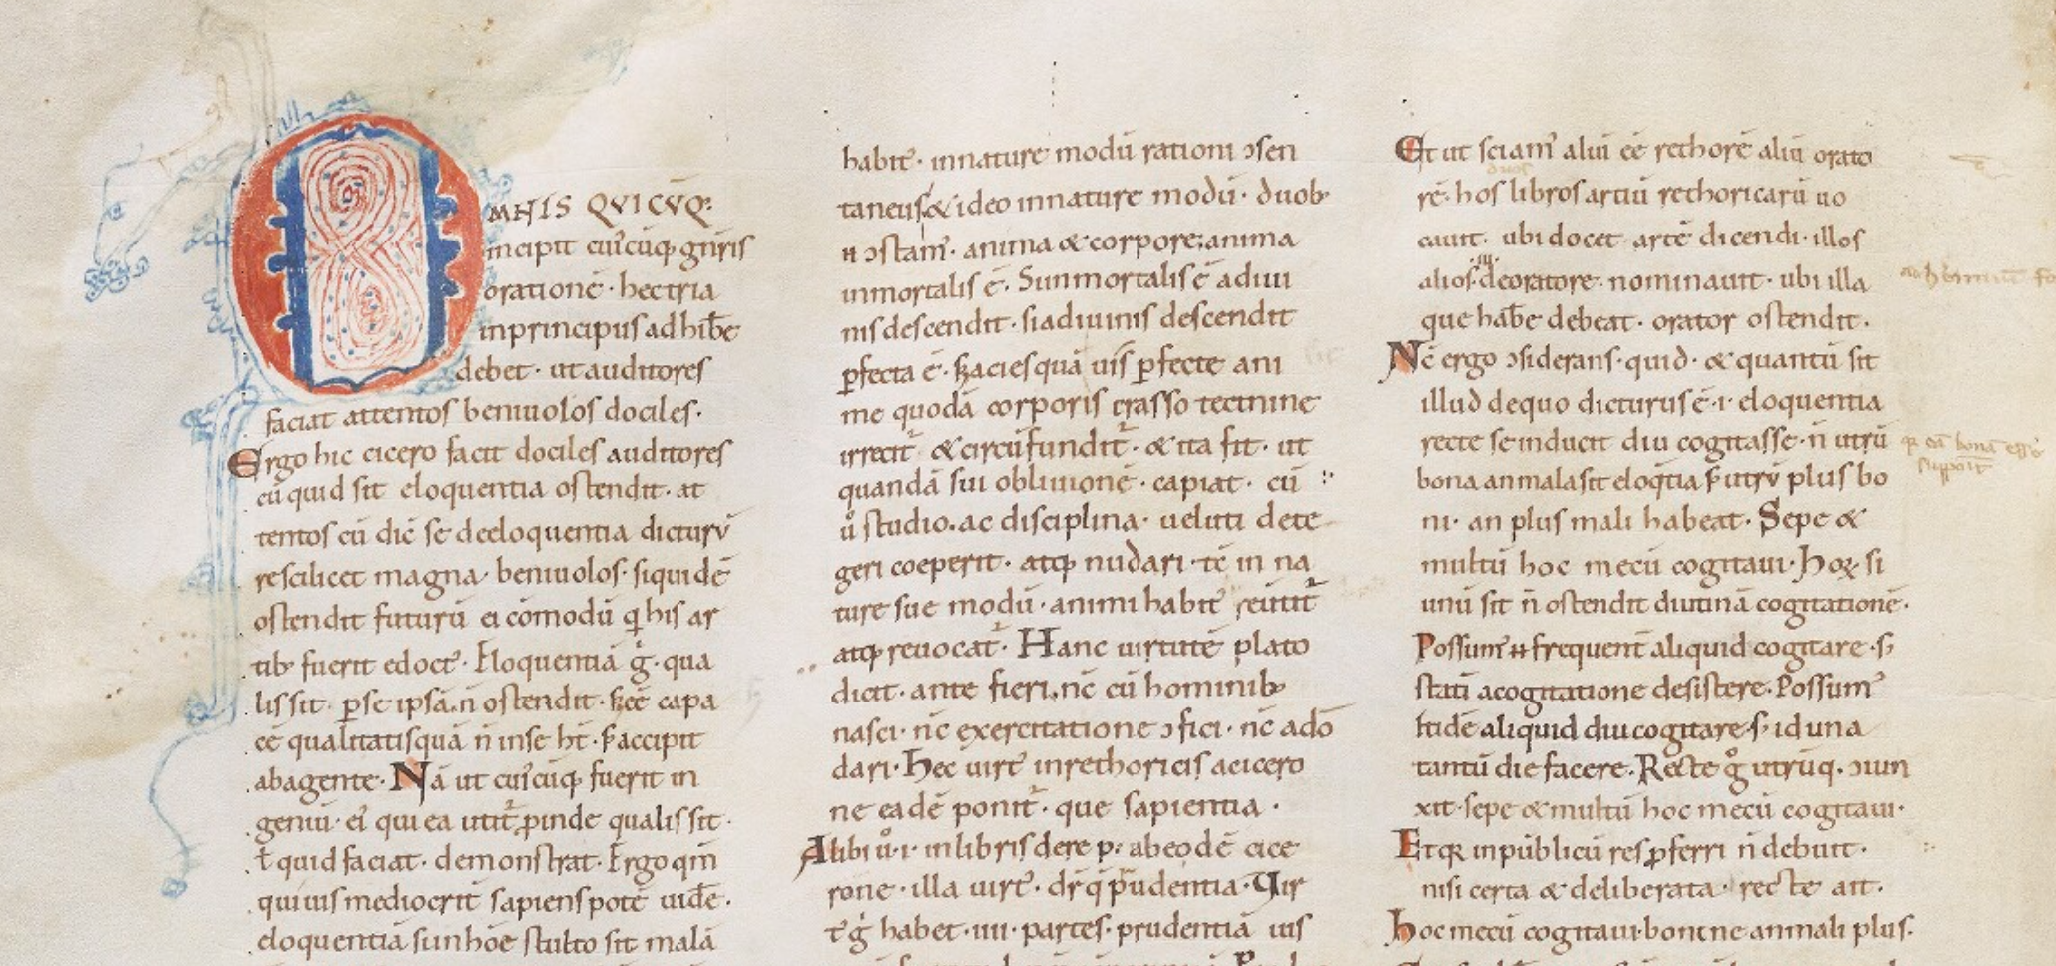 OMNIS QVICVQ:
incipit cuicūq; gnris
oratione· hec tria
in principiis adhibe
debet· ut auditores
faciat attentos beniuolos dociles·
Ergo hic cicero facit dociles auditores
cū quid sit eloquentia ostendit· at
tentos cū dic̄ se de eloquentia dicturū
re scilicet magna· beniuolos· siquidē
ostendit futurū ei cōmodū q̄ his ar
tib; fuerit edoct᷒· Eloquentiā g̊· qua
lis sit· ꝑ se ipsā· n̄ ostendit· capa
cē qualitatis quā n̄ in se ht̄· s; accipit
ab agente· Nā ut cui᷒cūq; fuerit in
geniū· ei᷒ qui ea utit᷑ ꝓinde qualis sit·
t̄ quid faciat· demonstrat· Ergo qm̄
quiuis mediocrit̄ sapiens potē uidē·
eloquentiā sūn hōe stulto sit malā
habit᷒· in nature modū rationi ↄsen
taneus & ideo in nature modū· duob;
n̄ ↄstam᷒· anima & corpore; anima
inmortalis ē· Si inmortalis ē a diui
nis descendit· si a diuinis descendit
ꝑfecta ē· acies quāuis ꝑfecte ani
me quodā corporis crasso tectmine
irretit᷑ & circūfundit᷑· & ita fit· ut
quandā sui obliuionē· capiat· cū
ů studio· ac disciplina· ueluti dete
geri coeperit· atq; nudari· tē in na
ture sue modū· animi habit᷒ reutit᷑
atq; reuocat᷑· Hanc uirtutē plato
dicit· ante fieri· nc̄ cū hominib;
nasci· nc̄ exercitatione ↄfici· nc̄ adō
dari· Hec uirt᷒ in rethoricis a cicero
ne eadē ponit᷑· que sapientia·
Alibi ů· i· in libris de re p· ab eodē cice
rone· illa uirt᷒· dr̄ q̄ prudentia· Vir
t᷒ g̊ habet· iiii· partes· prudentiā ius
Et ut sciam᷒ aliū cē rethorē aliū orato
rē· hos libros artiū rethoricarū uo
cauit· ubi docet artē dicendi· illos
alios· iii· de oratore· nominauit· ubi illa
que habe debeat· orator ostendit·
Nc̄ ergo ↄsiderans· quid· & quantū sit
illud de quo dicturus ē· i· eloquentia
recte se inducit diu cogitasse· n̄ utrū
bona an mala sit eloq̄tia s; utrū plus bo
ni· an plus mali habeat· Sepe &
multū hoc mecū cogitaui· Hoꝝ si
unū sit n̄ ostendit diutinā cogitationē·
Possum᷒ n̄ frequent̄ aliquid cogitare· s;
statī a cogitatione desistere· Possum᷒
itidē aliquid diu cogitare· s; id una
tantū die facere· Recte g̊ utrūq· ↄiun
xit· sepe & multū hoc mecū cogitaui·
Et qꝛ in publicū res ꝓferri n̄ debuit·
nisi certa & deliberata· recte ait·
Hoc mecū cogitaui· bonine an mali plus·